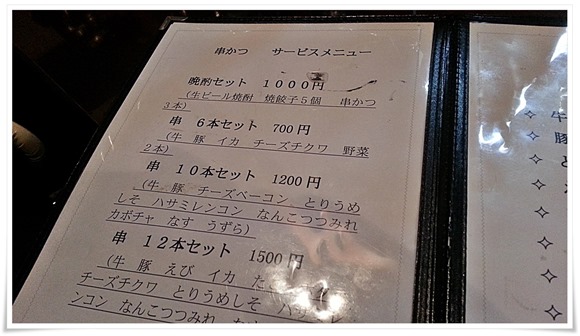 串かつ サービスメニュー
晩酌セット 1000円
(生ビール焼酎 焼餃子5個 串かつ
3本)
串 6本セット 700円
(牛 豚 イカ チーズチクワ 野菜
2本)
串 10本セット 1200円
(牛 豚 チーズベーコン とりうめ
しそ ハサミレンコン なんこつつみれ
カボチャ なす うずら)
串 12本セット 1500円
(牛 豚 えび イカ た
チーズチクワ とりうめしそ ハサミレ
ンコン なんこつつみれ
✧ 牛
✧ 豚
✧
✧
✧
✧
✧
✧